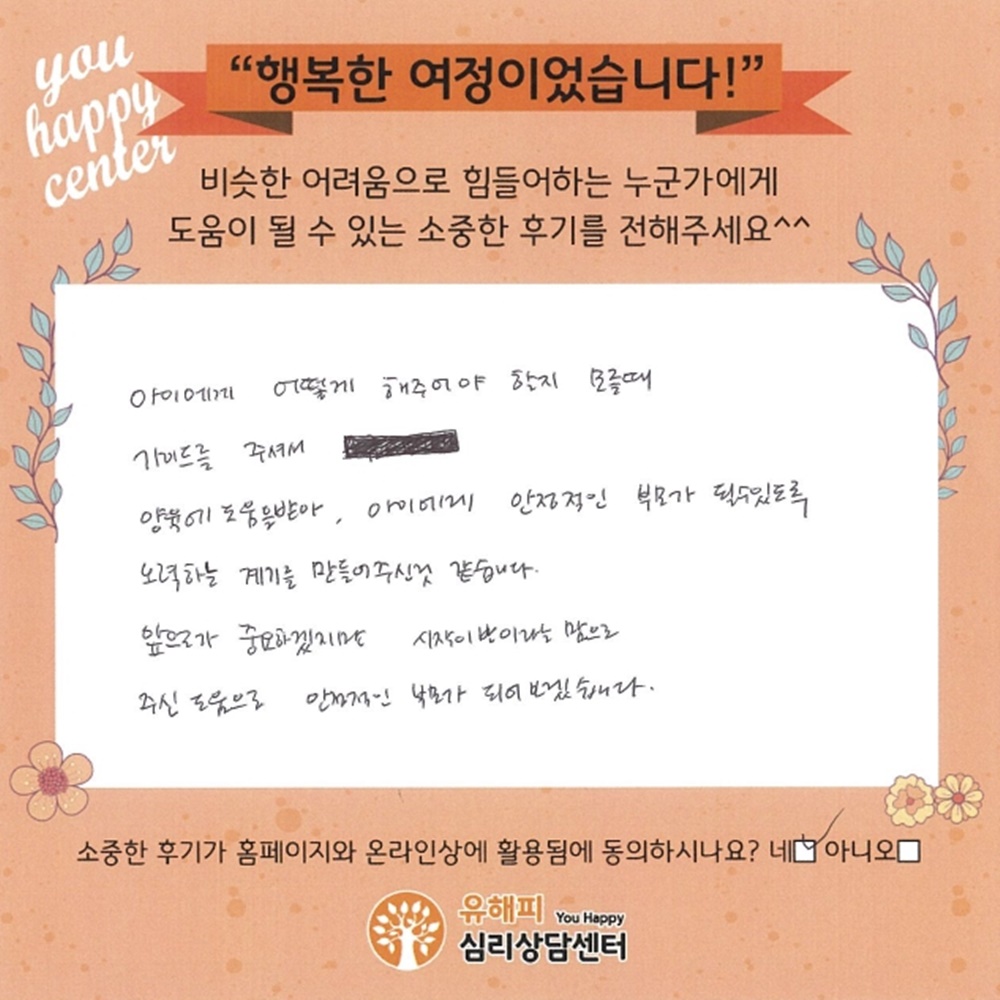 you
happy
center
“행복한 여정이었습니다!”
비슷한 어려움으로 힘들어하는 누군가에게
도움이 될 수 있는 소중한 후기를 전해주세요^^
아이에게 어떻게 해주어야 할지 모를때
가이드를 주셔서
양육에 도움을받아, 아이에게 안정적인 부모가 될수있도록
노력하는 계기를 만들어주신것 같습니다.
앞으로가 중요하겠지만 시작이반이라는 맘으로
주신 도움으로 안정적인 부모가 되어보겠습니다.
소중한 후기가 홈페이지와 온라인상에 활용됨에 동의하시나요? 네 아니오
유해피 You Happy
심리상담센터